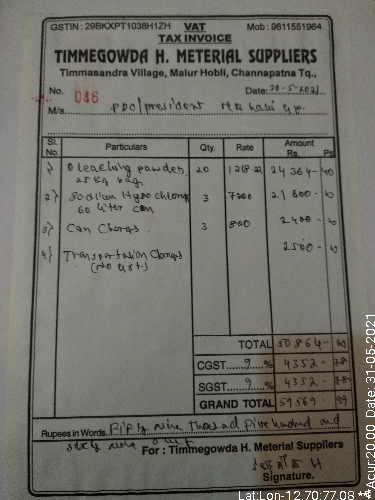 GSTIN : 29BKXPT1038H1ZH VAT Mob : 9611551964
TAX INVOICE
TIMMEGOWDA H. METERIAL SUPPLIERS
Timmasandra Village, Malur Hobli, Channapatna Tq.,
No. 046 Date: 20-5-2021
M/s PDO/president
Sl. No. Particulars Qty. Rate Amount Rs. Ps
1) Bleaching powder 20 1218 22 24364-40
25 Kg bag
2) Sodium Hypo chlory 3 7200 21600-
60 liter can
3) Can Charges 3 800 2400-
4) Transportation Charges 2500-
(no gst)
TOTAL 50864-
CGST 9 % 4352-78
SGST 9 % 4352-78
GRAND TOTAL 59569-99
Rupees in Words. Fifty nine Thousand five hundred and
sixty nine only
For : Timmegowda H. Meterial Suppliers
Signature.
Lat:Lon-12.70:77.08
Acur:20.00 Date: 31-05-2021